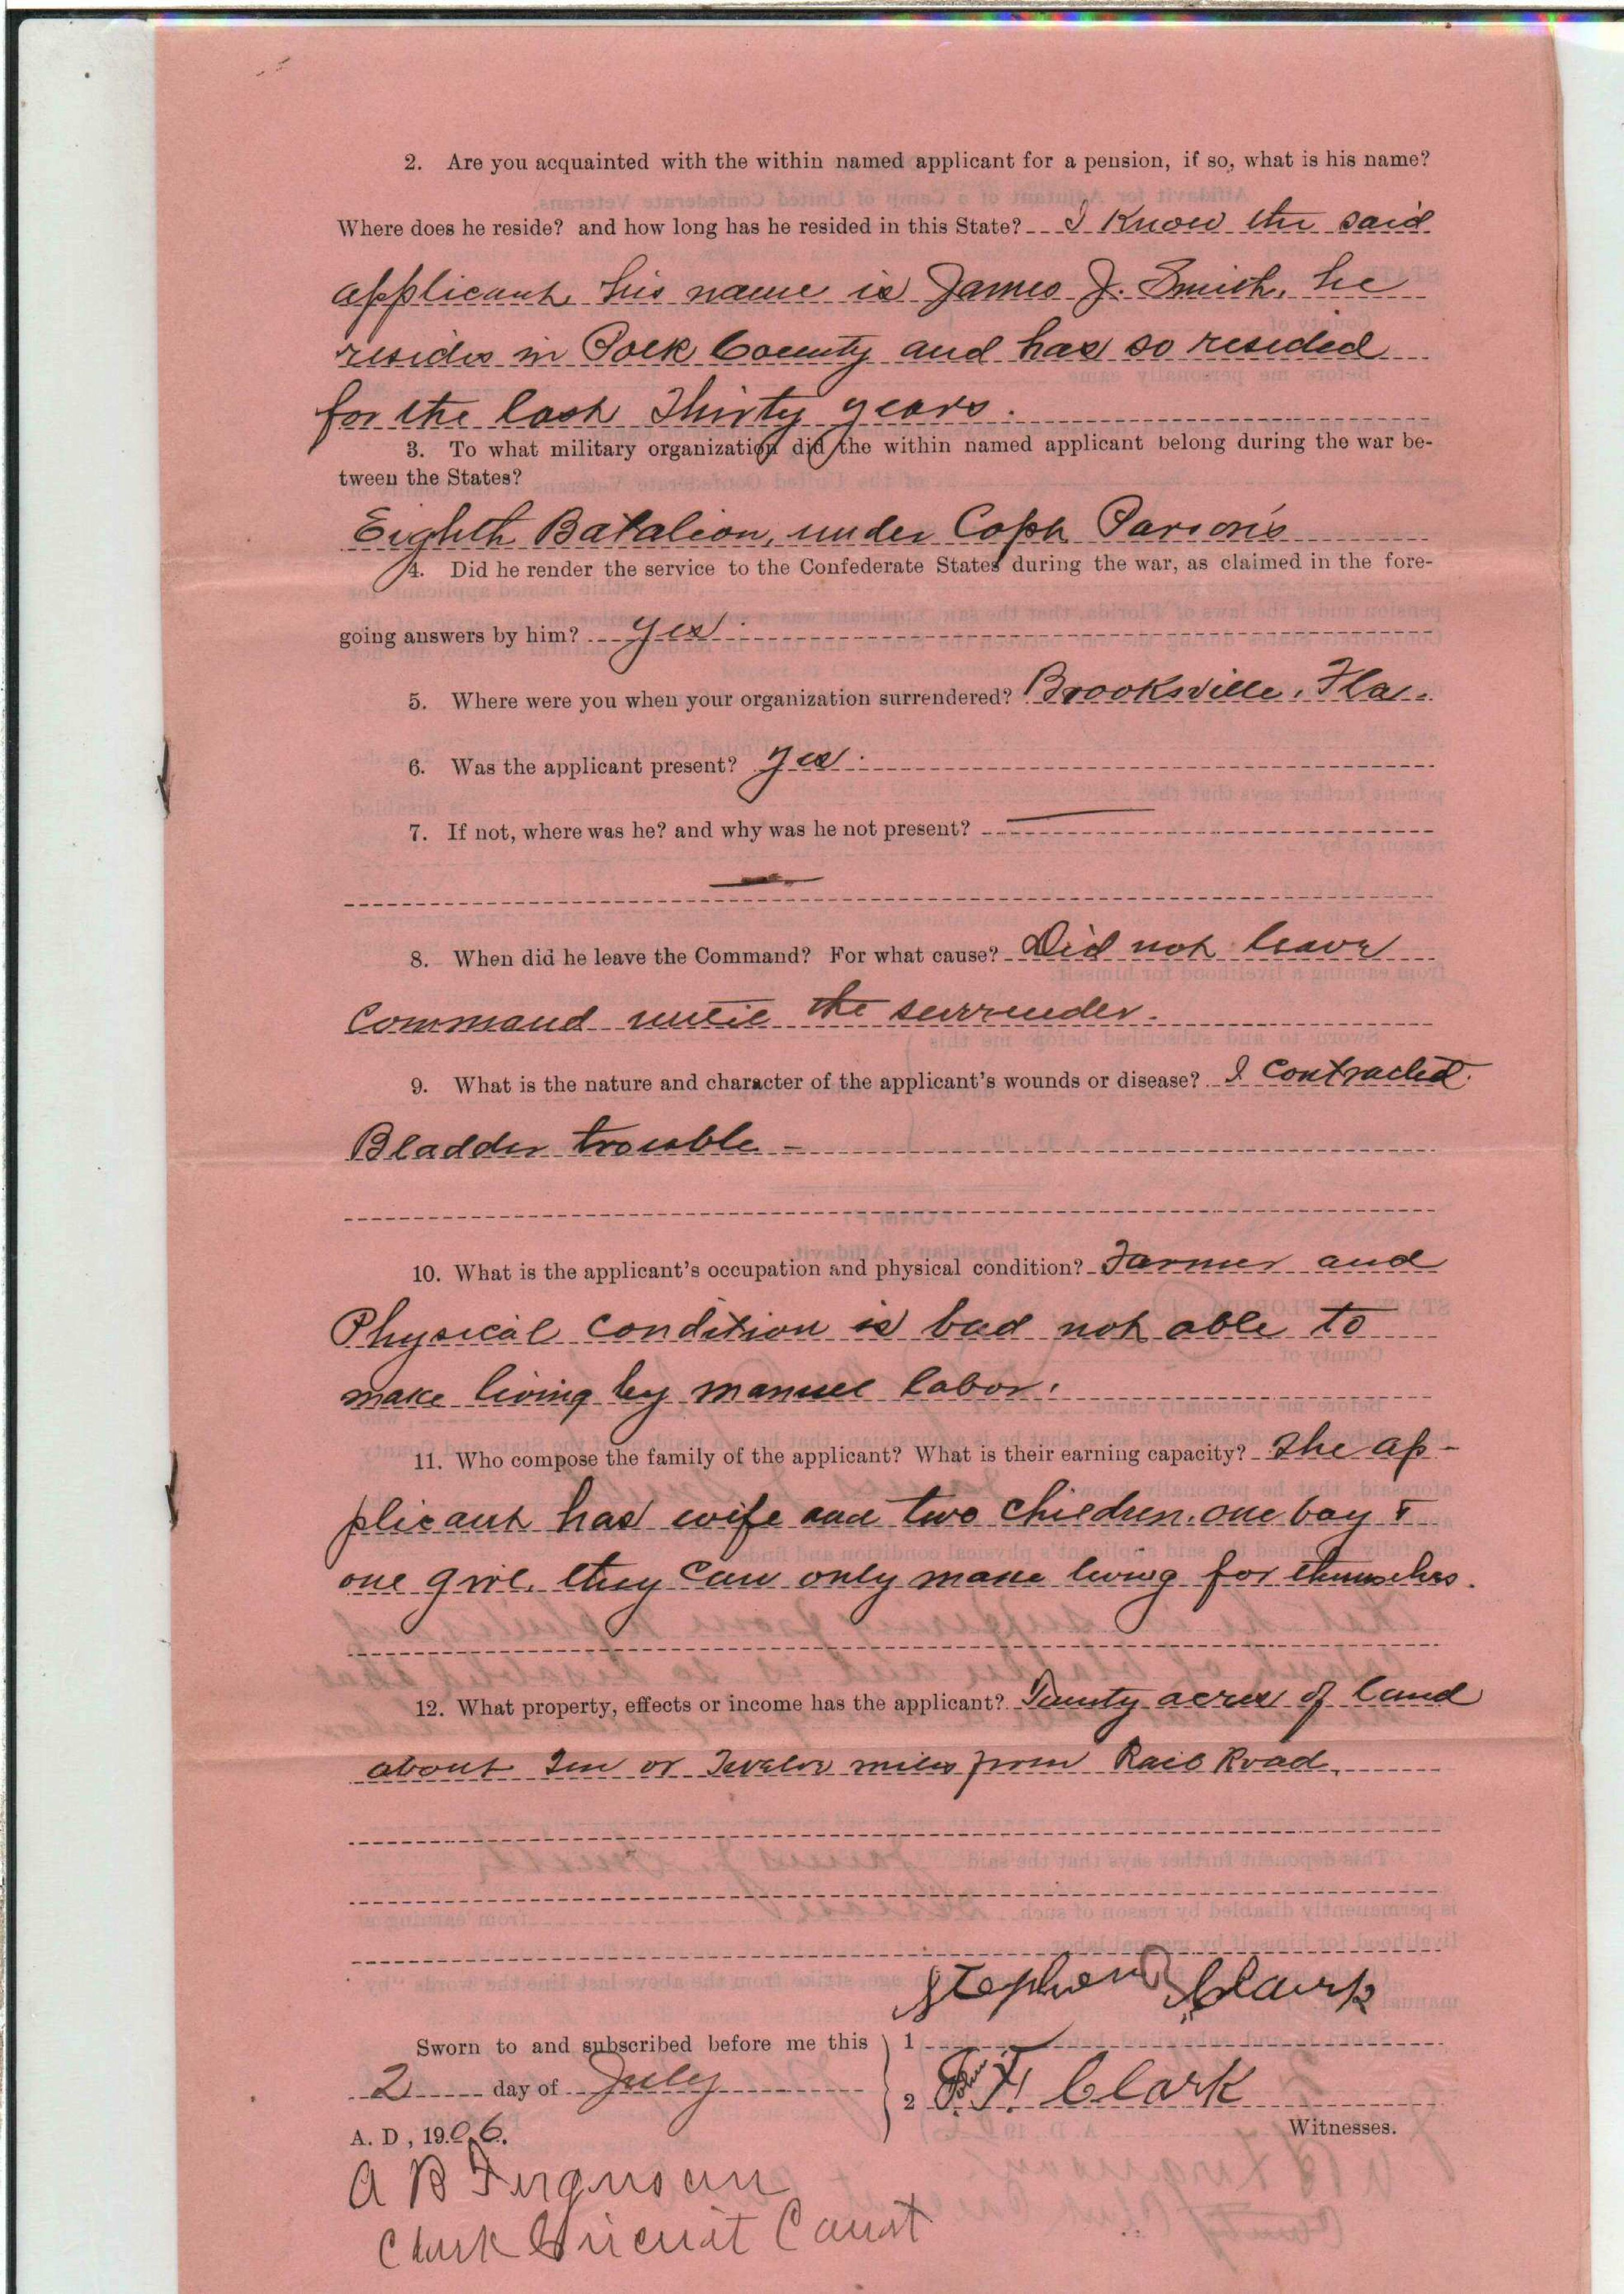 2. Are you acquainted with the within named applicant for a pension, if so, what is his name?
Where does he reside? and how long has he resided in this State? I Know the said
applicant, his name is James J. Smith, he
resides in Polk County and has so resided
for the last Thirty years.
3. To what military organization did the within named applicant belong during the war be-
tween the States?
Eighth Batalion, under Capt Parsons
4. Did he render the service to the Confederate States during the war, as claimed in the fore-
going answers by him? yes
5. Where were you when your organization surrendered? Brooksville, Fla.
6. Was the applicant present? yes.
7. If not, where was he? and why was he not present?
8. When did he leave the Command? For what cause? Did not leave
Command until the surrender.
9. What is the nature and character of the applicant's wounds or disease? I contracted
Bladder trouble -
10. What is the applicant's occupation and physical condition? Farmer and
Physical condition is bad not able to
make living by manuel labor.
11. Who compose the family of the applicant? What is their earning capacity? The ap-
plicant has wife and two children, one boy &
one girl, they can only make living for themselves.
12. What property, effects or income has the applicant? Twenty acres of land
about Ten or Twelve miles from Rail Road.
Stephen Clark
Sworn to and subscribed before me this
1
2 day of July
2 F. Clark
A. D, 1906.
Witnesses.
A B Ferguson
Clerk Circuit Court